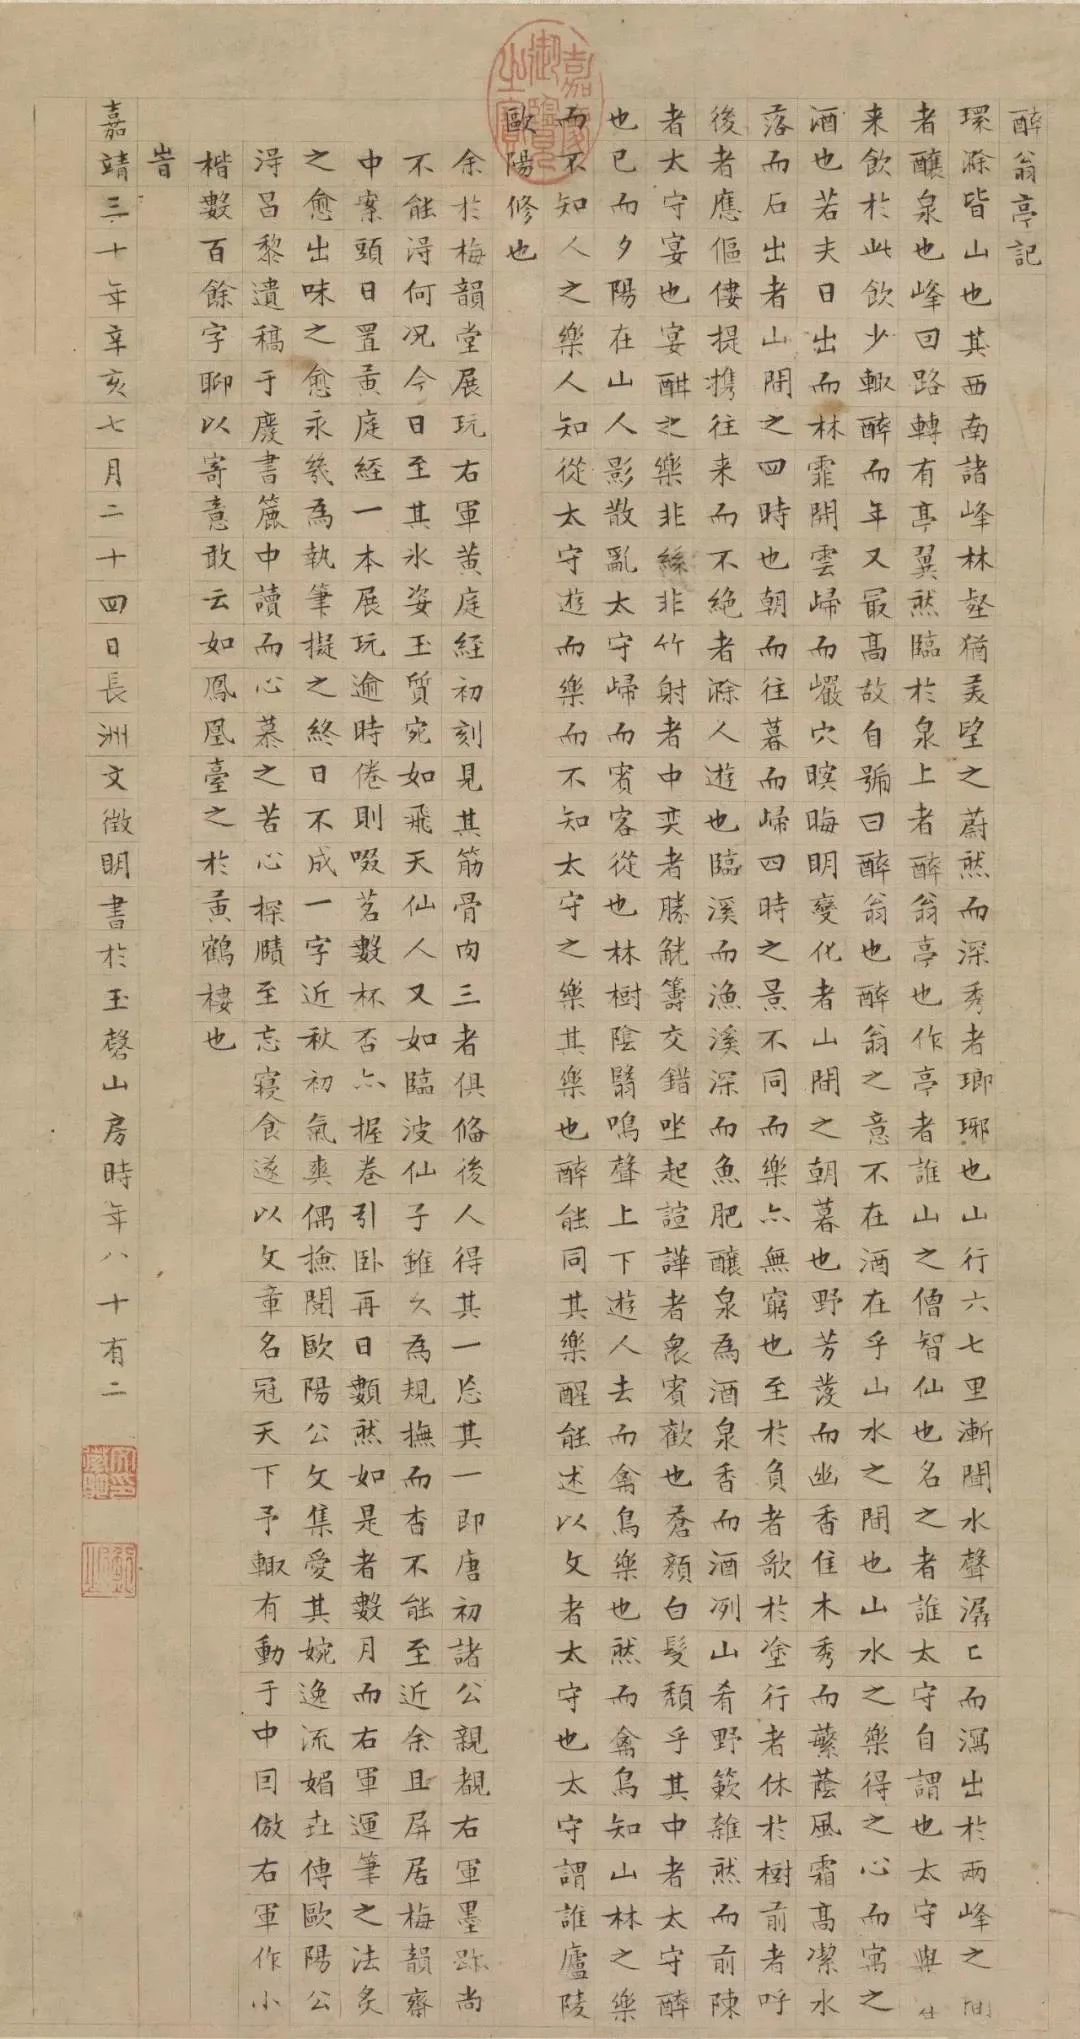 醉翁亭記
環滁皆山也其西南諸峰林壑猶美望之蔚然而深秀者瑯琊也山行六七里漸聞水聲潺〻而瀉出於兩峰之間
者釀泉也峰回路轉有亭翼然臨於泉上者醉翁亭也作亭者誰山之僧智仙也名之者誰太守自謂也太守與
来飲於此飲少輙醉而年又最高故自號曰醉翁也醉翁之意不在酒在乎山水之間也山水之樂得之心而寓之
酒也若夫日出而林霏開雲歸而巖穴暝晦明變化者山間之朝暮也野芳發而幽香佳木秀而蘩蔭風霜高潔水
落而石出者山間之四時也朝而往暮而歸四時之景不同而樂亦無窮也至於負者歌於塗行者休於樹前者呼
後者應傴僂提攜往来而不絶者滁人遊也臨溪而漁溪深而魚肥釀泉為酒泉香而酒冽山肴野蔌雜然而前陳
者太守宴也宴酣之樂非絲非竹射者中奕者勝觥籌交錯坐起諠譁者衆賓歡也蒼顔白髮頹乎其中者太守醉
也已而夕陽在山人影散亂太守歸而賓客從也林樹陰翳鳴聲上下遊人去而禽鳥樂也然而禽鳥知山林之樂
而不知人之樂人知從太守遊而樂而不知太守之樂其樂也醉能同其樂醒能述以文者太守也太守謂誰廬陵
歐陽修也
余於梅韻堂展玩右軍黄庭經初刻見其筋骨肉三者俱備後人得其一忘其一即唐初諸公親覩右軍墨跡尚
不能淂何况今日至其氷姿玉質宛如飛天仙人又如臨波仙子雖久為規撫而杳不能至近余且屏居梅韻齋
中案頭日置黄庭經一本展玩逾時倦則啜茗數杯否亦握卷引卧再日數然如是者數月而右軍運筆之法炙
之愈出味之愈永幾為執筆擬之終日不成一字近秋初氣爽偶撿閲歐陽公文集愛其婉逸流媚且傳歐陽公
淂昌黎遺稿于廢書簏中讀而心慕之苦心探賾至忘寝食遂以文章名冠天下予輙有動于中因倣右軍作小
楷數百餘字聊以寄意敢云如鳳凰臺之於黄鶴樓也
旹
嘉靖三十年辛亥七月二十四日長洲文徵明書於玉磬山房時年八十有二